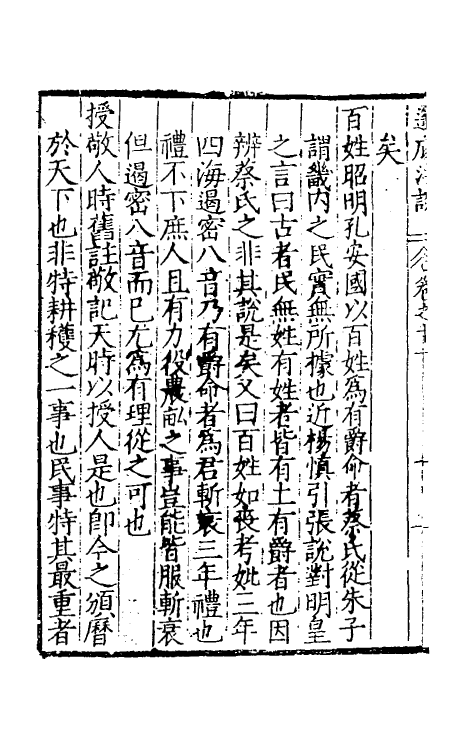 矣
百姓昭明孔安國以百姓爲有爵命者蔡氏從朱子
謂畿內之民實無所據也近楊慎引張說對明皇
之言曰古者民無姓有姓者皆有土有爵者也因
辨蔡氏之非其說是矣又曰百姓如喪考妣三年
四海遏密八音乃有爵命者爲君斬衰三年禮也
禮不下庶人且有力役農畝之事豈能皆服斬衰
但遏密八音而已尤爲有理從之可也
授敬人時舊註敬記天時以授人是也卽今之頒曆
於天下也非特耕穫之一事也民事特其最重者